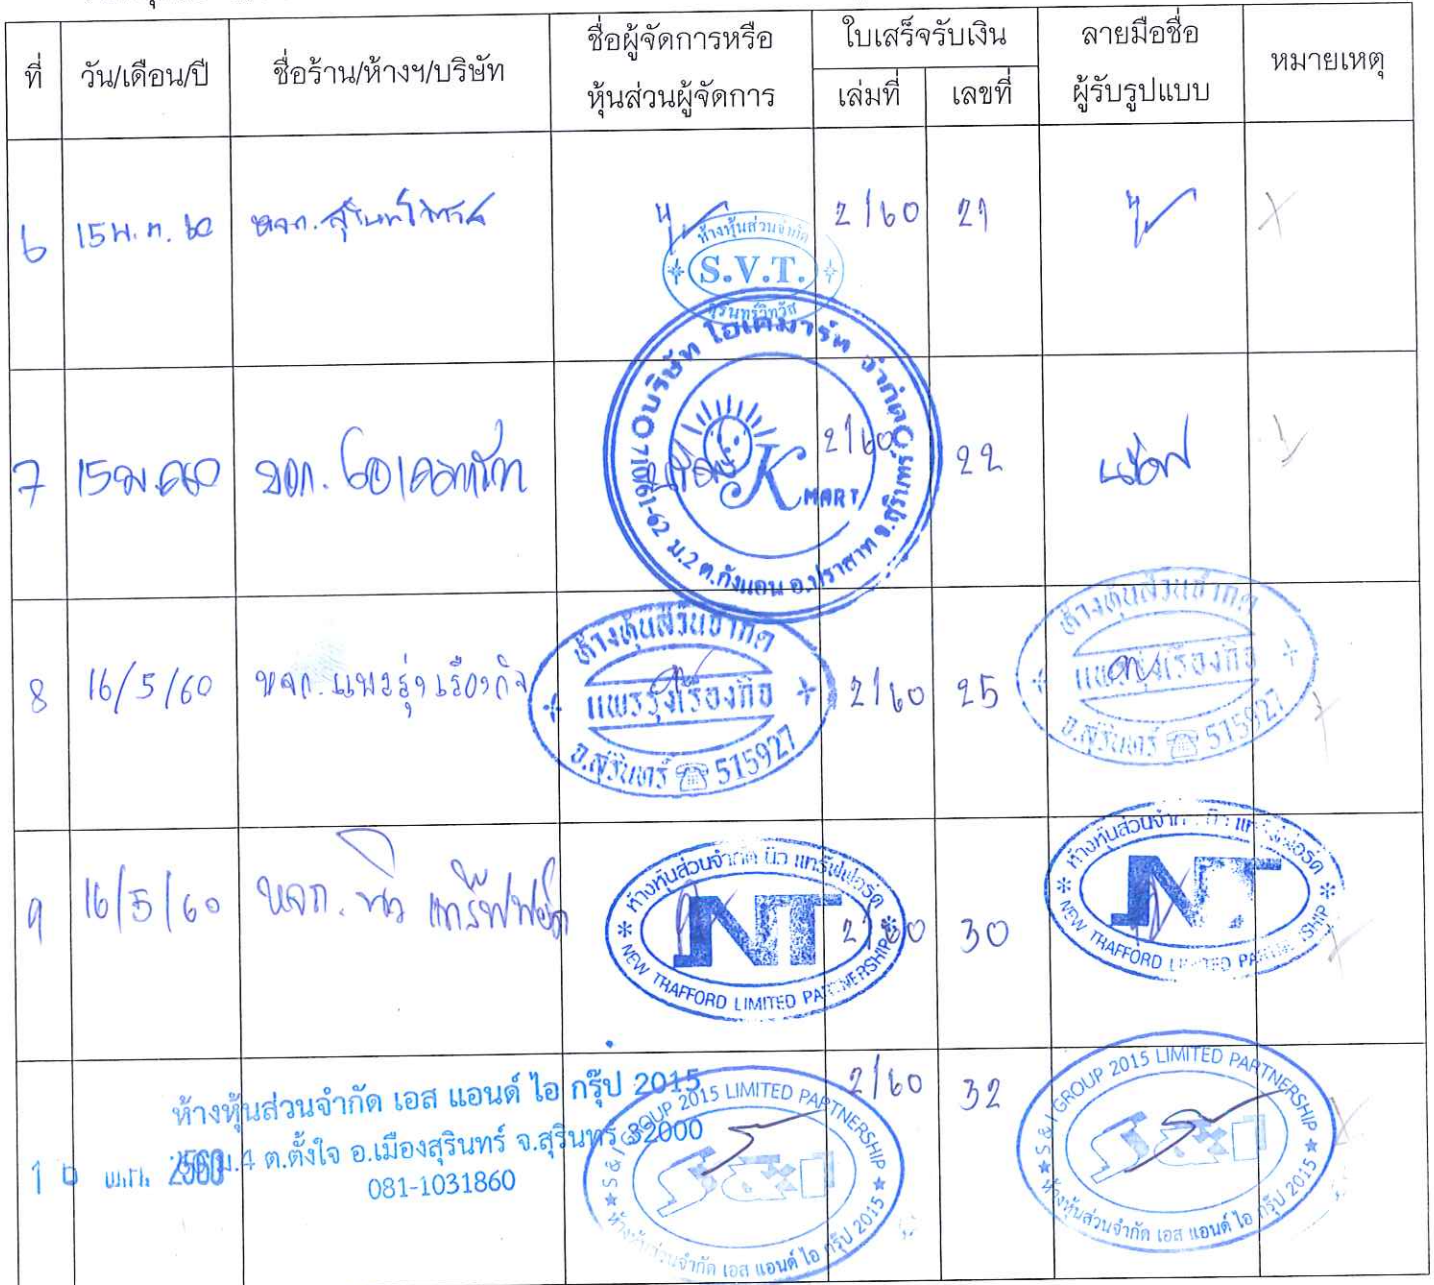 ที่ วัน/เดือน/ปี ชื่อร้าน/ห้างฯ/บริษัท ชื่อผู้จัดการหรือ หุ้นส่วนผู้จัดการ ใบเสร็จรับเงิน เล่มที่ เลขที่ ลายมือชื่อ ผู้รับรูปแบบ หมายเหตุ
6 15 พ.ค. 60 หจก. สุรินทร์วิทวัส 2/60 21
ห้างหุ้นส่วนจำกัด
S.V.T.
สุรินทร์วิทวัส
7 2/60 22
บริษัท โอเคมาร์ท จำกัด
K MART
710/61-62 ม.2 ต.กังแอน อ.ปราสาท จ.สุรินทร์
8 16/5/60 หจก. แพรรุ่งเรืองกิจ 2/60 25
ห้างหุ้นส่วนจำกัด
แพรรุ่งเรืองกิจ
จ.สุรินทร์ ☎ 515927
ห้างหุ้นส่วนจำกัด
แพรรุ่งเรืองกิจ
จ.สุรินทร์ ☎ 515927
9 16/5/60 หจก. นิว แทร์ฟฟอร์ด 2/60 30
ห้างหุ้นส่วนจำกัด นิว แทร์ฟฟอร์ด
NT
NEW THAFFORD LIMITED PARTNERSHIP
ห้างหุ้นส่วนจำกัด นิว แทร์ฟฟอร์ด
NT
NEW THAFFORD LIMITED PARTNERSHIP
ห้างหุ้นส่วนจำกัด เอส แอนด์ ไอ กรุ๊ป 2015 2/60 32
ม.4 ต.ตั้งใจ อ.เมืองสุรินทร์ จ.สุรินทร์ 32000
081-1031860
1 6 พ.ค. 2560
S & I GROUP 2015 LIMITED PARTNERSHIP
ห้างหุ้นส่วนจำกัด เอส แอนด์ ไอ กรุ๊ป 2015
S & I GROUP 2015 LIMITED PARTNERSHIP
ห้างหุ้นส่วนจำกัด เอส แอนด์ ไอ กรุ๊ป 2015